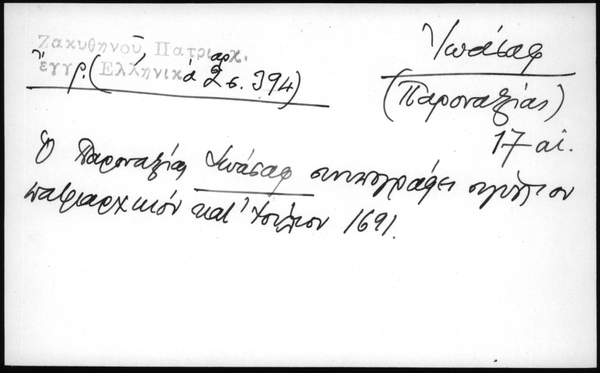 Ζακυθηνοῦ Πατριαρχ.
ἔγγρ. (Ἑλληνικὰ 2 σ. 394)
Ἰωάσαφ
(Παροναξίας)
17 αἰ.
Ὁ Παροναξίας Ἰωάσαφ συνυπογράφει σιγίλλιον
πατριαρχικὸν κατ' Ἰούλιον 1691.